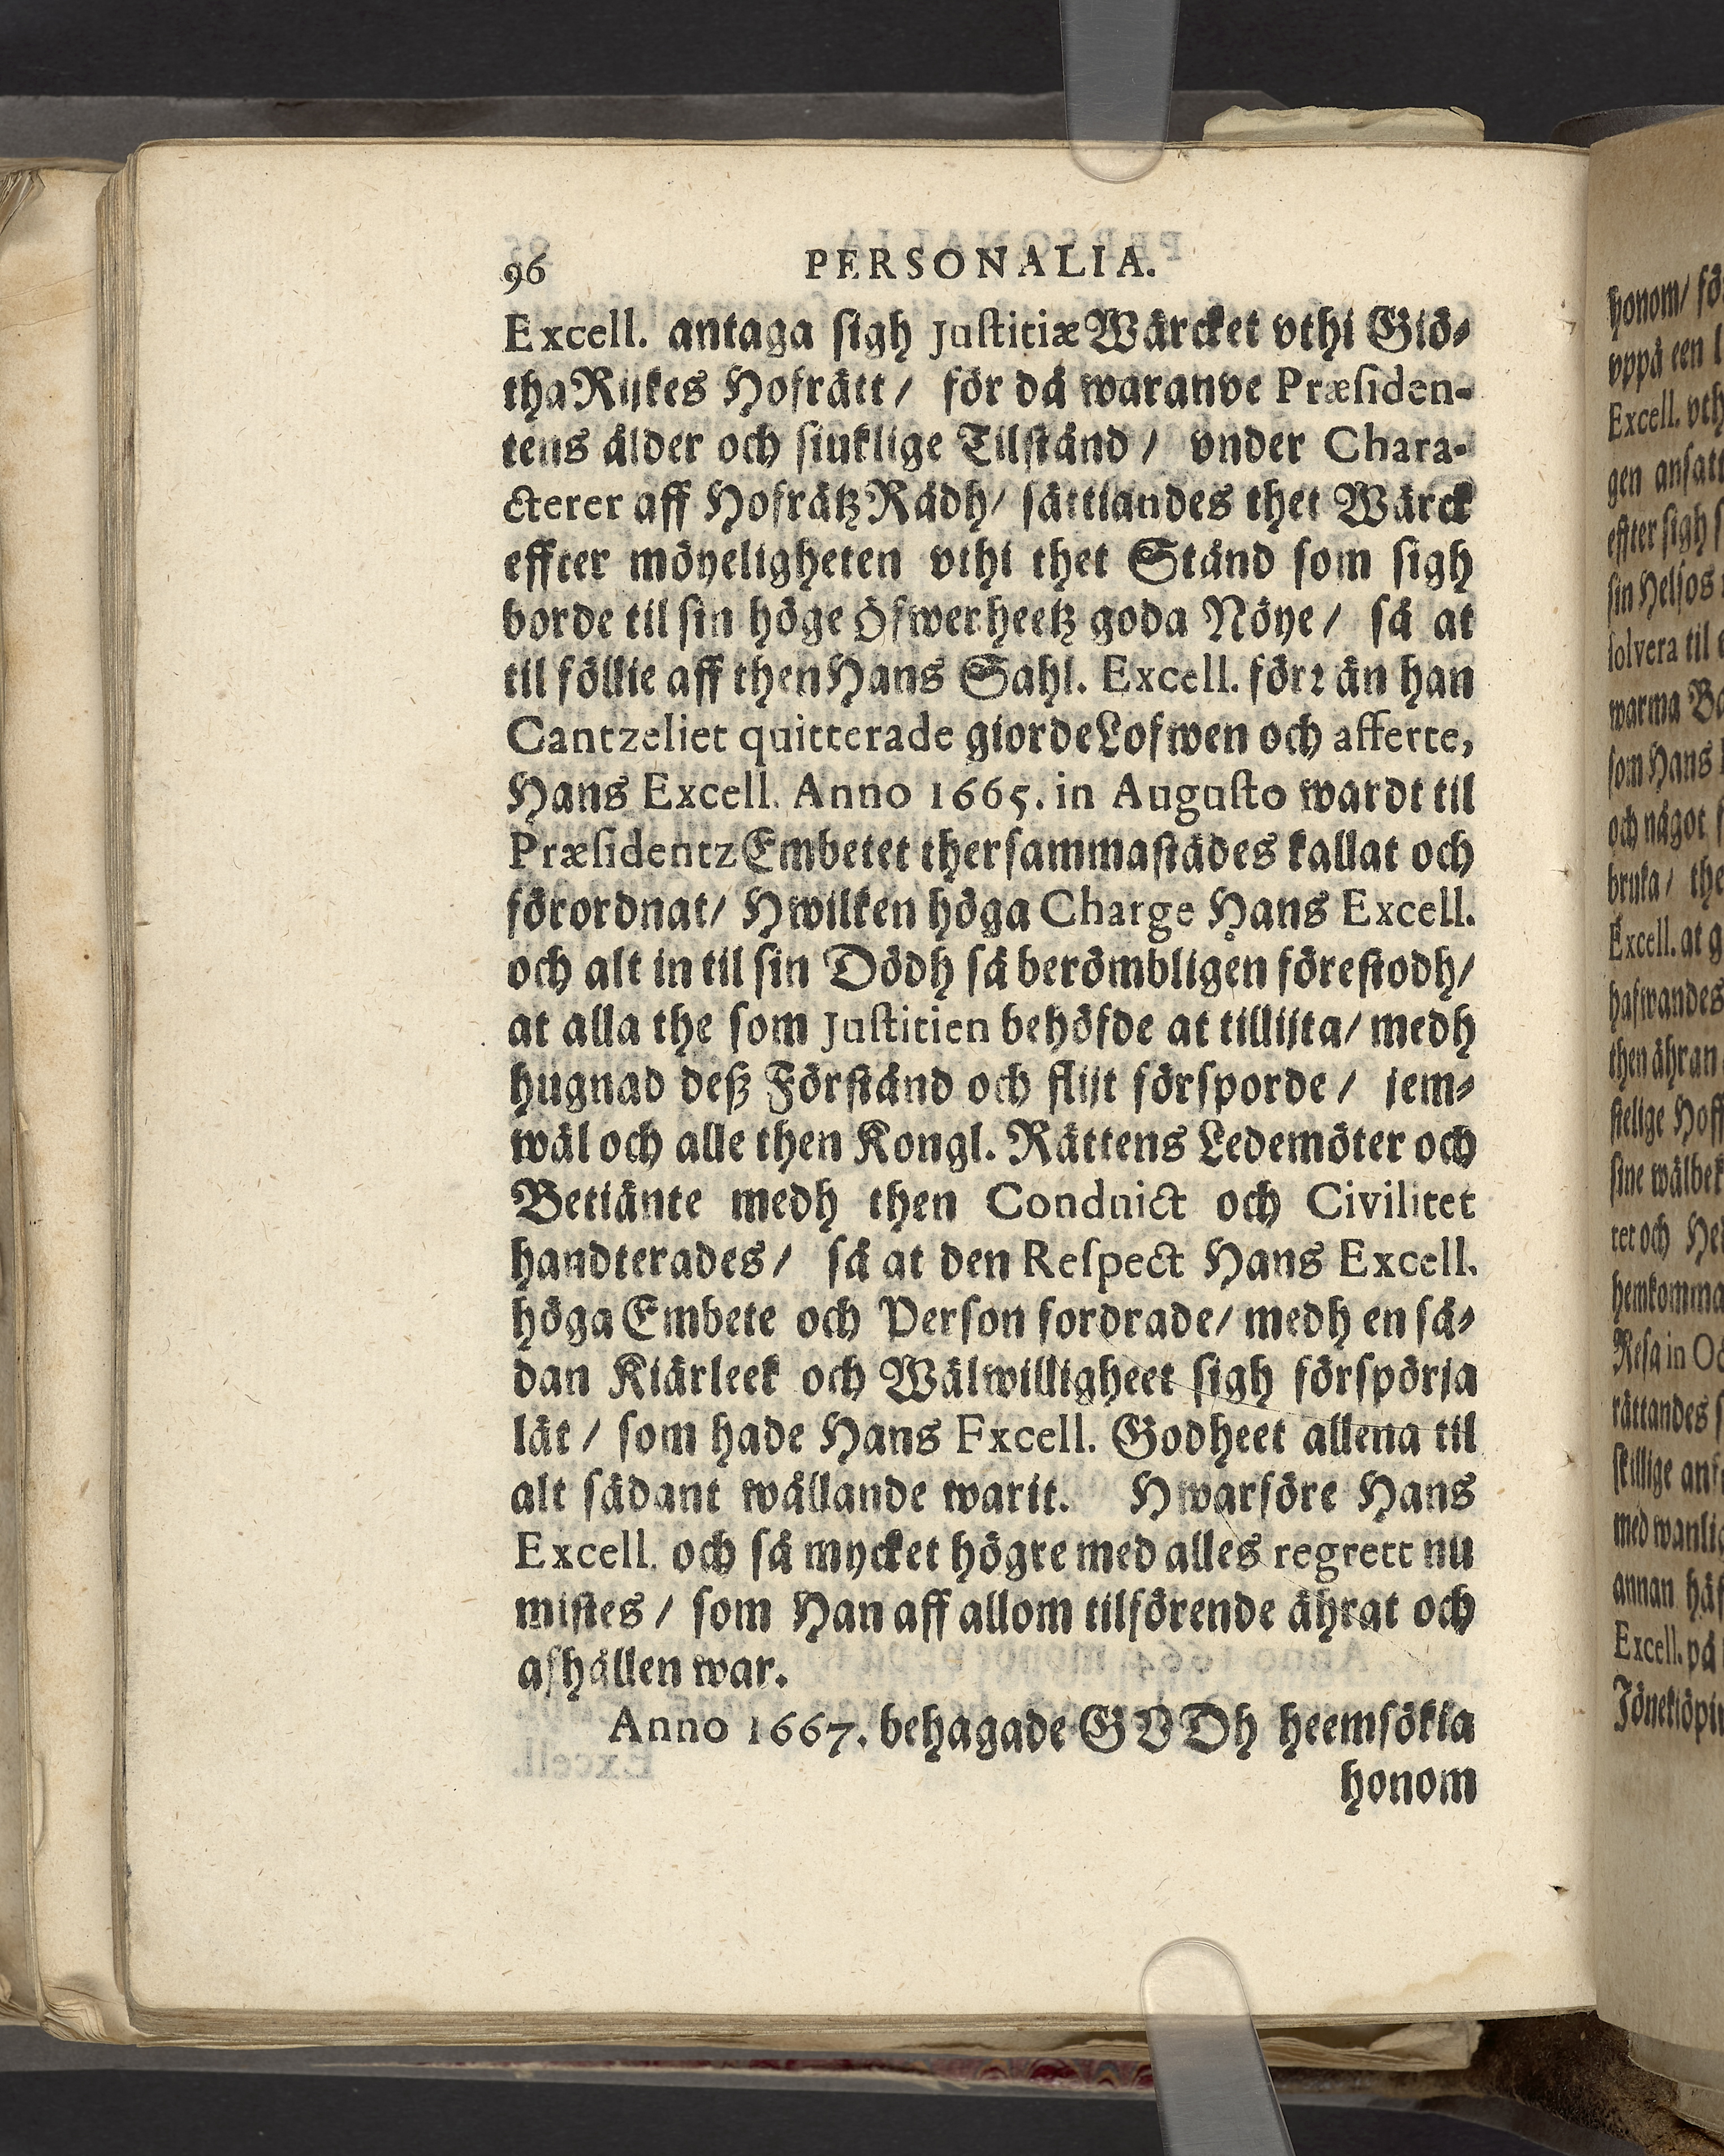 96 PERSONALIA.
Excell. antaga sigh Justitiæ Wärcket vthi Giö-
tha Rijkes Hofrätt / för då waranve Præsiden-
tens ålder och siuklige Tilstånd / vnder Chara-
cterer aff Hofrätz Rådh / sättiandes thet Wärck
effter möyeligheten vthi thet Stånd som sigh
borde til sin höge Öfwerheetz goda Nöye / så at
til föllie aff then Hans Sahl. Excell. förr än han
Cantzeliet quitterade giorde Lofwen och afferte,
Hans Excell. Anno 1665. in Augusto wardt til
Præsidentz Embetet thersammastädes kallat och
förordnat / Hwilken höga Charge Hans Excell.
och alt in til sin Dödh så berömbligen förestodh /
at alla the som Justitien behöfde at tillijta / medh
hugnad deß Förstånd och flijt försporde / jem-
wäl och alle then Kongl. Rättens Ledemöter och
Betiänte medh then Conduict och Civilitet
handterades / så at den Respect Hans Excell.
höga Embete och Person fordrade / medh en så-
dan Kiärleek och Wälwilligheet sigh förspörja
lät / som hade Hans Excell. Godheet allena til
alt sådant wållande warit. Hwarföre Hans
Excell. och så mycket högre med alles regrett nu
mistes / som Han aff allom tilförende ährat och
afhållen war.
Anno 1667. behagade GVDh heemsökia
honom
honom / fö
vppå een l
Excell. vth
gen ansatt
effter sigh s
sin Helsos
solvera til
warma
som Hans
och något
bruka / the
Excell. at g
hafwandes
then ähran
stelige Hoff
sine wälbek
ret och
hemkomma
Resa in
rättandes
skillige
med wanlig
annan
Excell. på